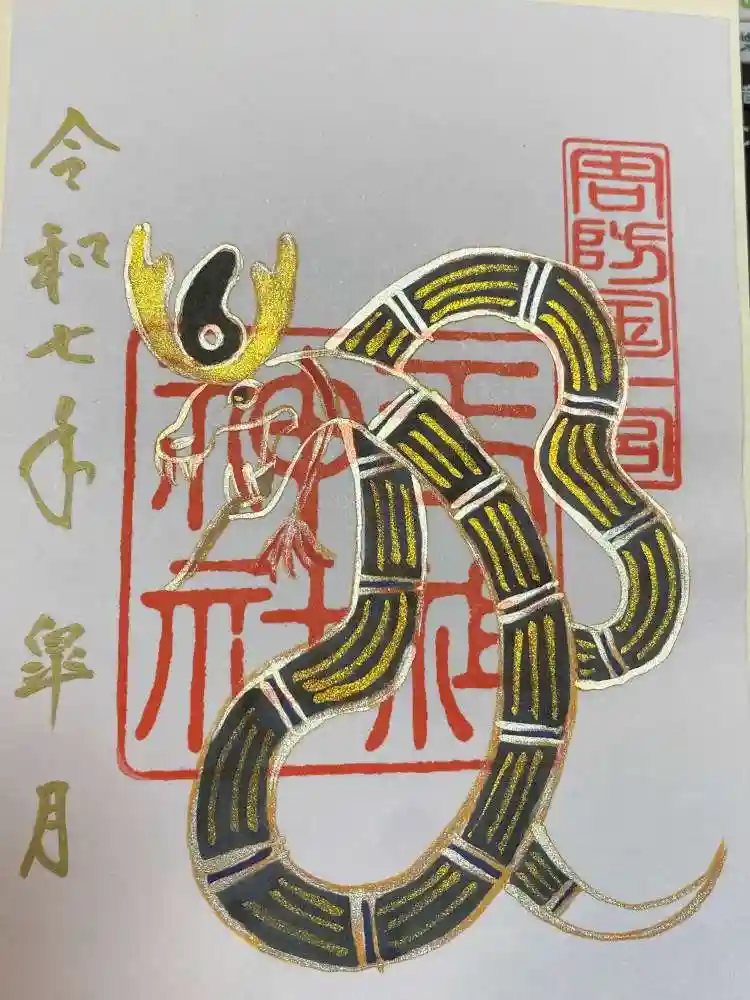 周防国一宮
玉祖
神社
令和七年 皐月